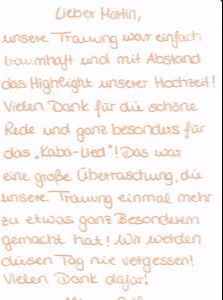 Lieber Martin,
unsere Trauung war einfach
traumhaft und mit Abstand
das Highlight unserer Hochzeit!
Vielen Dank für die schöne
Rede und ganz besonders für
das „Kaba-Lied"! Das war
eine große Überraschung, die
unsere Trauung einmal mehr
zu etwas ganz Besonderem
gemacht hat! Wir werden
diesen Tag nie vergessen!
Vielen Dank dafür!